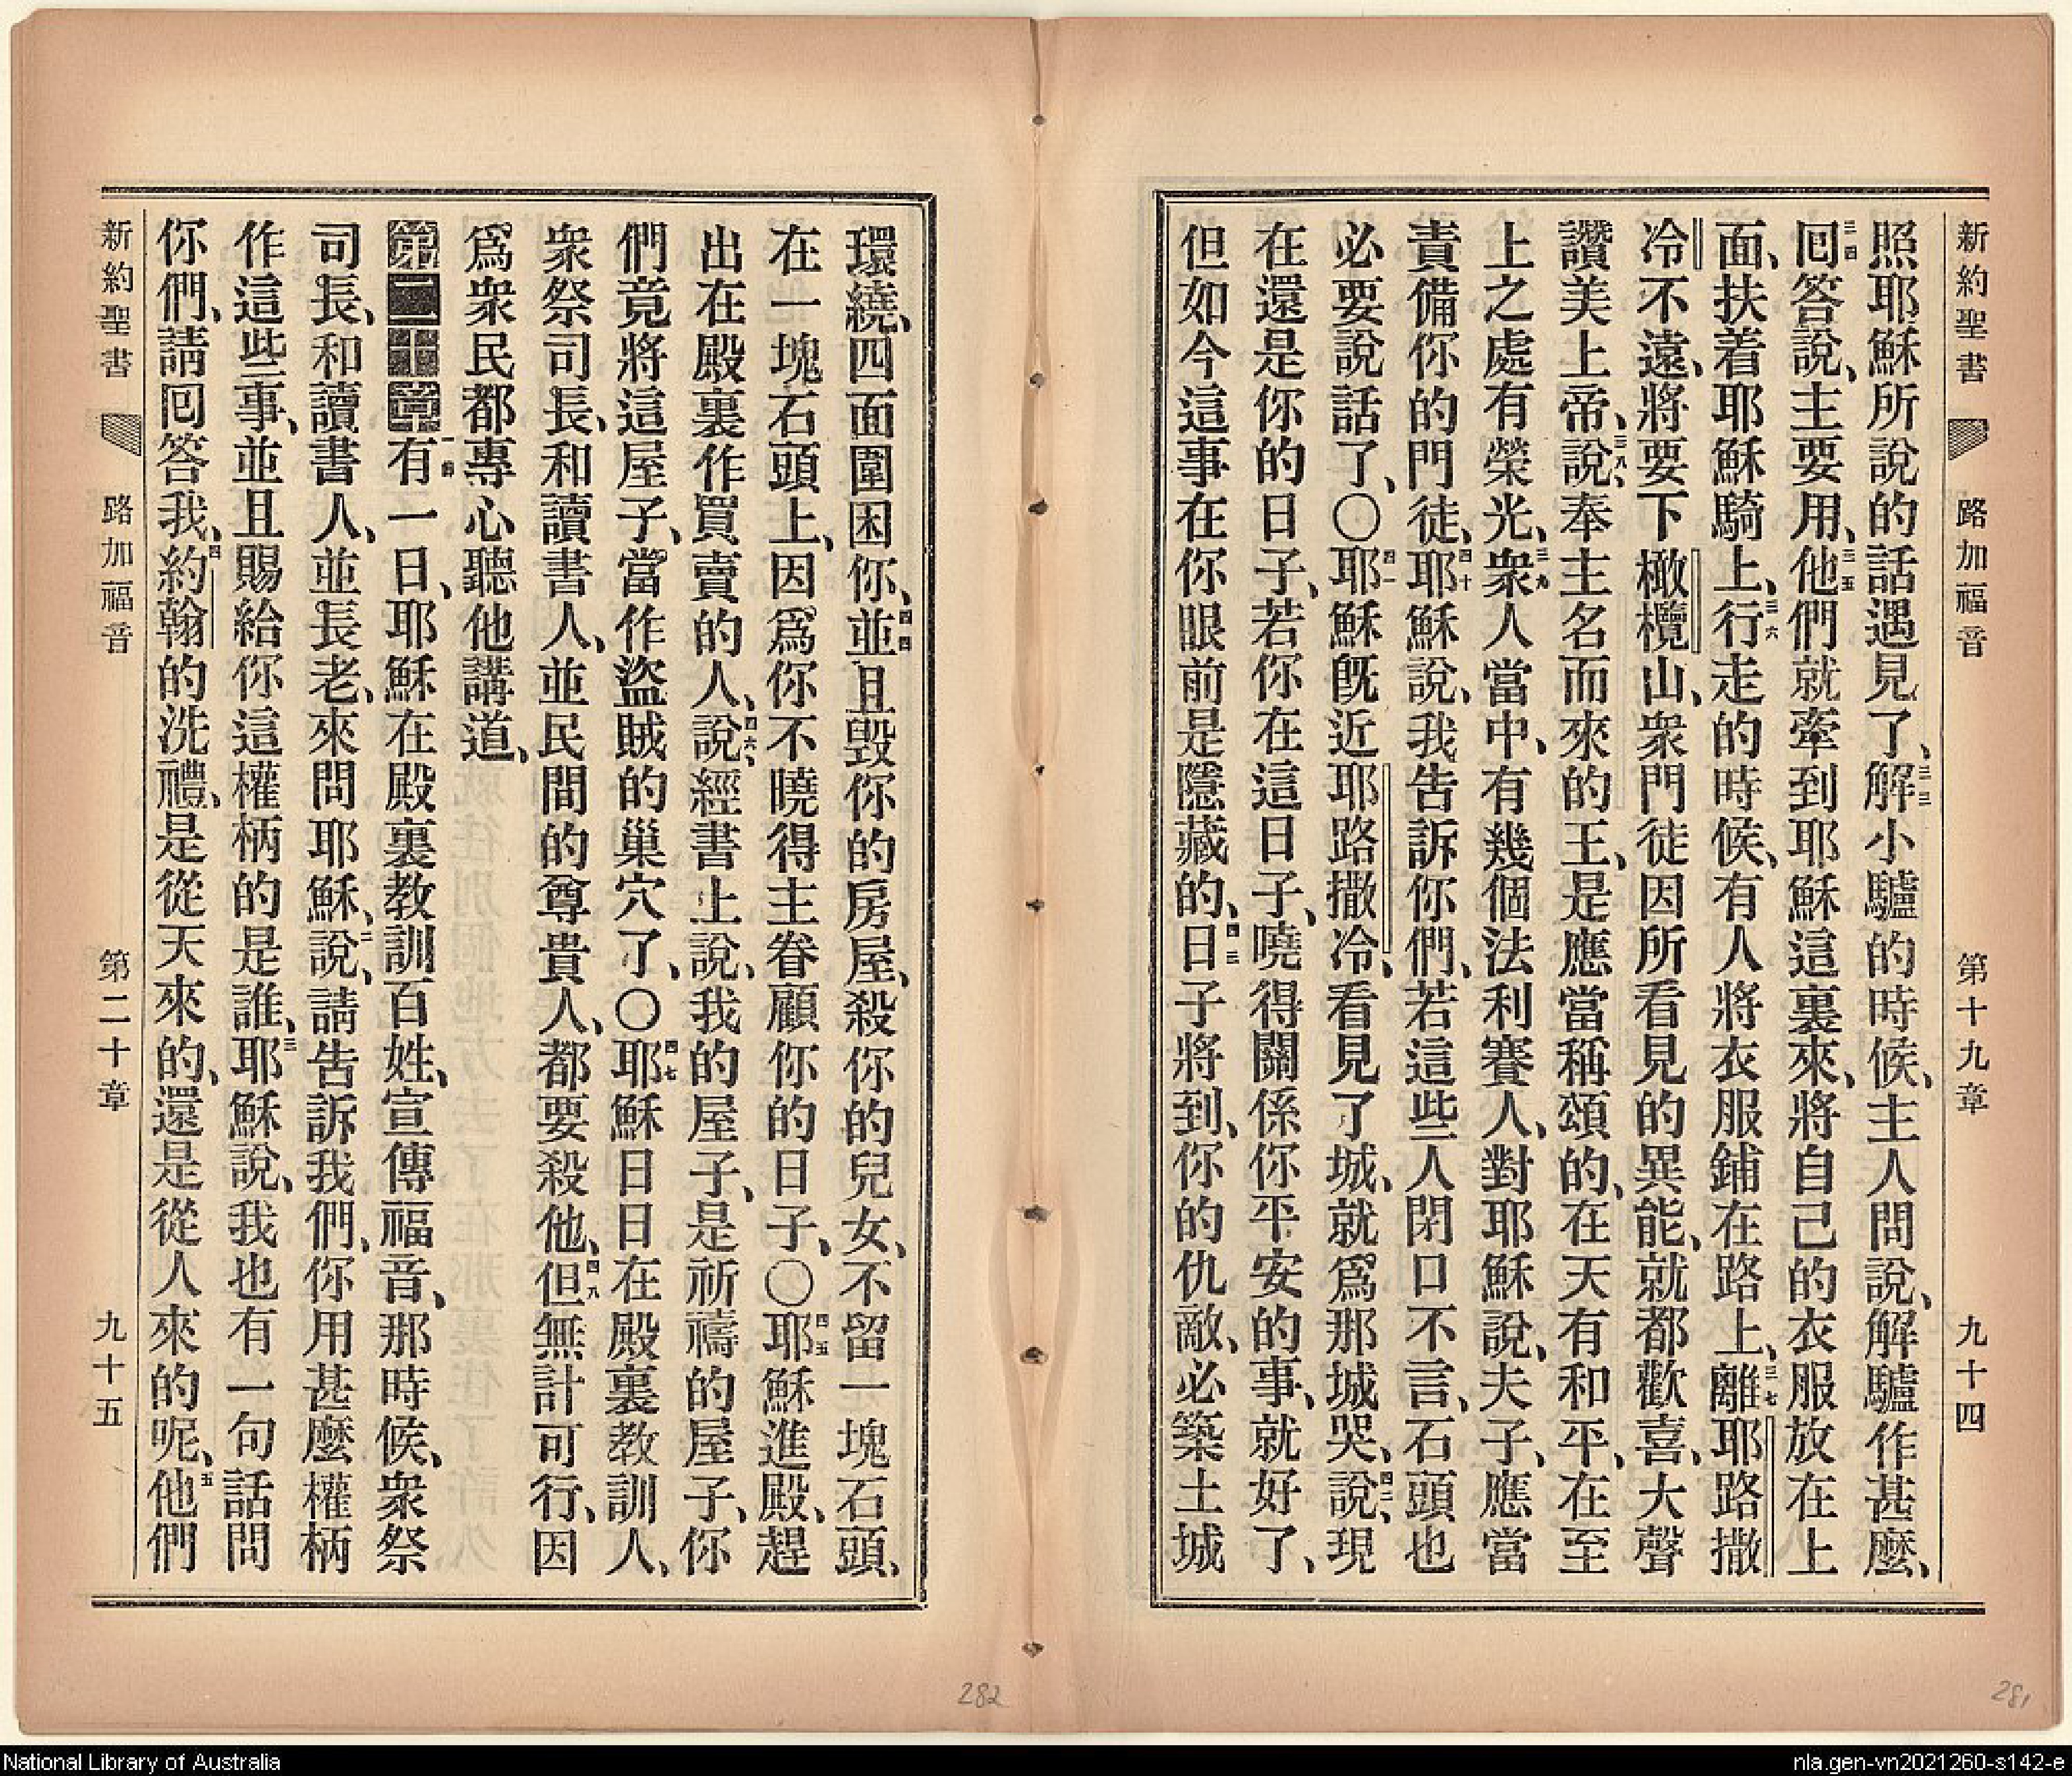 新約聖書 路加福音 第十九章 九十四
照耶穌所說的話遇見了、三三解小驢的時候、主人問說、解驢作甚麼、
三四囘答說、主要用、三五他們就牽到耶穌這裏來、將自己的衣服放在上
面、扶着耶穌騎上、三六行走的時候、有人將衣服鋪在路上、三七離耶路撒
冷不遠、將要下橄欖山、衆門徒因所看見的異能、就都歡喜、大聲
讚美上帝、三八說、奉主名而來的王、是應當稱頌的、在天有和平、在至
上之處有榮光、三九衆人當中、有幾個法利賽人、對耶穌說、夫子、應當
責備你的門徒、四十耶穌說、我告訴你們、若這些人閉口不言、石頭也
必要說話了、〇四一耶穌旣近耶路撒冷、看見了城、就爲那城哭、四二說、現
在還是你的日子、若你在這日子、曉得關係你平安的事、就好了、
但如今這事在你眼前是隱藏的、四三日子將到、你的仇敵、必築土城
環繞、四面圍困你、四四並且毀你的房屋、殺你的兒女、不留一塊石頭、
在一塊石頭上、因爲你不曉得主眷顧你的日子、〇四五耶穌進殿、趕
出在殿裏作買賣的人、四六說、經書上說、我的屋子、是祈禱的屋子、你
們竟將這屋子、當作盜賊的巢穴了、〇四七耶穌日日在殿裏教訓人、
衆祭司長、和讀書人、並民間的尊貴人、都要殺他、四八但無計可行、因
爲衆民都專心聽他講道、
第二十章一節有一日、耶穌在殿裏教訓百姓、宣傳福音、那時候、衆祭
司長、和讀書人、並長老、來問耶穌、二說、請告訴我們、你用甚麼權柄
作這些事、並且賜給你這權柄的是誰、三耶穌說、我也有一句話問
你們、請囘答我、四約翰的洗禮、是從天來的、還是從人來的呢、五他們
新約聖書 路加福音 第二十章 九十五
282
281
National Library of Australia
nla.gen-vn2021260-s142-e